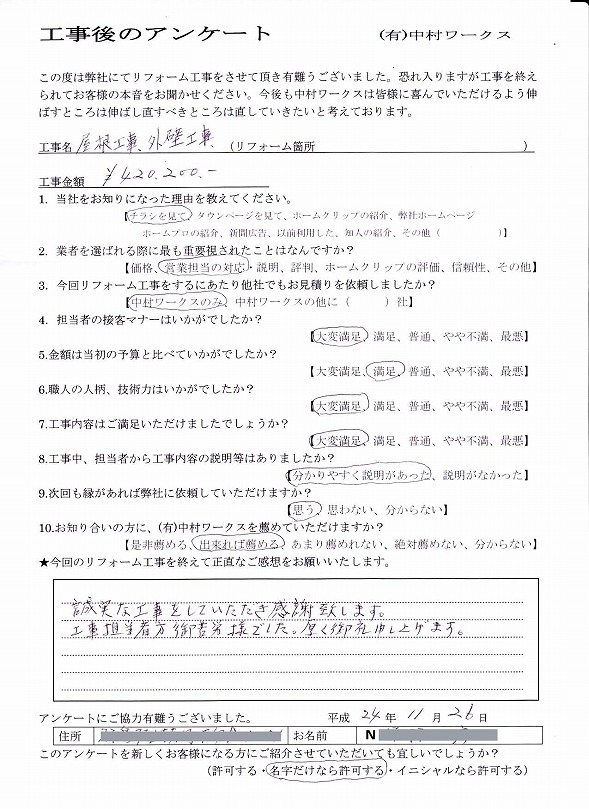 工事後のアンケート (有)中村ワークス
この度は弊社にてリフォーム工事をさせて頂き有難うございました。恐れ入りますが工事を終え
られてお客様の本音をお聞かせください。今後も中村ワークスは皆様に喜んでいただけるよう伸
ばすところは伸ばし直すべきところは直していきたいと考えております。
工事名 屋根工事、外壁工事 (リフォーム箇所 )
工事金額 ¥420.200.-
1. 当社をお知りになった理由を教えてください。
【チラシを見て、タウンページを見て、ホームクリップの紹介、弊社ホームページ
ホームプロの紹介、新聞広告、以前利用した、知人の紹介、その他( )】
2. 業者を選ばれる際に最も重要視されたことはなんですか?
【価格、営業担当の対応・説明、評判、ホームクリップの評価、信頼性、その他】
3. 今回リフォーム工事をするにあたり他社でもお見積りを依頼しましたか?
【中村ワークスのみ、中村ワークスの他に( )社】
4. 担当者の接客マナーはいかがでしたか?
【大変満足、満足、普通、やや不満、最悪】
5.金額は当初の予算と比べていかがでしたか?
【大変満足、満足、普通、やや不満、最悪】
6.職人の人柄、技術力はいかがでしたか?
【大変満足、満足、普通、やや不満、最悪】
7.工事内容はご満足いただけましたでしょうか?
【大変満足、満足、普通、やや不満、最悪】
8.工事中、担当者から工事内容の説明等はありましたか?
【分かりやすく説明があった、説明がなかった】
9.次回も縁があれば弊社に依頼していただけますか?
【思う、思わない、分からない】
10.お知り合いの方に、(有)中村ワークスを薦めていただけますか?
【是非薦める、出来れば薦める、あまり薦めれない、絶対薦めない、分からない】
★今回のリフォーム工事を終えて正直なご感想をお願いいたします。
誠実な工事をしていただき感謝致します。
工事担当者方御苦労様でした。厚く御礼申し上げます。
アンケートにご協力有難うございました。 平成 24 年 11 月 26 日
住所 お名前 N
このアンケートを新しくお客様になる方にご紹介させていただいても宜しいでしょうか?
(許可する・名字だけなら許可する・イニシャルなら許可する)